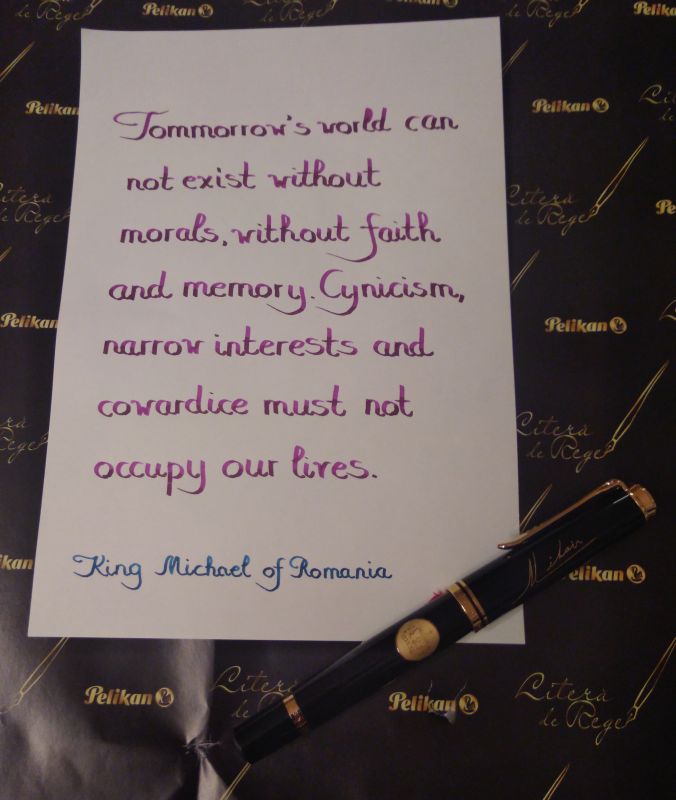 Pelikan
de Rege
Pelikan
de Rege
Pelikan
Pelikan
Pelikan
Tommorrow's world can
not exist without
morals, without faith
and memory. Cynicism,
narrow interests and
cowardice must not
occupy our lives.
King Michael of Romania
Literă
de Rege
Pelikan
Pelikan
Literă
de Rege
Mihai
Pelikan
Pelikan
Literă
de Rege
Pelikan
Literă
de Rege